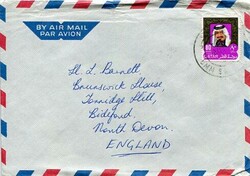 BY AIR MAIL
PAR AVION
H. L. Barnett,
Brunswick House,
Torridge Hill,
Bideford,
North Devon.
ENGLAND